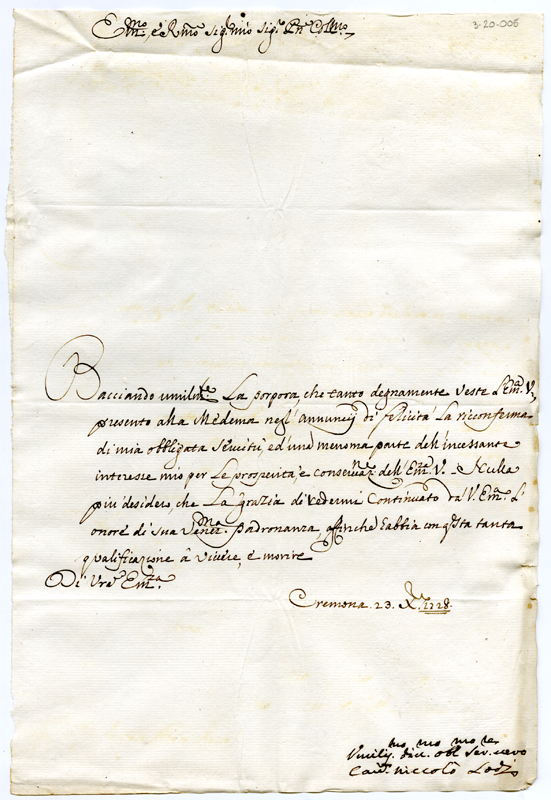 3-20-006
Em̃o, e Rm̃o Sig. mio Sig. Pñe Collmo.
Bacciando umilmte. La porpora, che tanto degnamente veste L'Em̃. V.
presento alla Medema negl'annuncij di felicità La riconferma
di mia obbligata Servitù, ed'una menoma parte dell'incessante
interesse mio per Le prosperità, e conservazne. dell'Em̃a V. Nulla
più desidero, che La grazia di vedermi Continuato da V. Em̃. L'
onore di sua Venerma. padronanza, affinche habbia con qsta tanta
qualificazione à vivere, e morire
Di Vrã Em̃za.
Cremona. 23. Xbre. 1728.
Umilmo. Divmo. obbmo Servre. vero
Cav. Niccolò Lodi